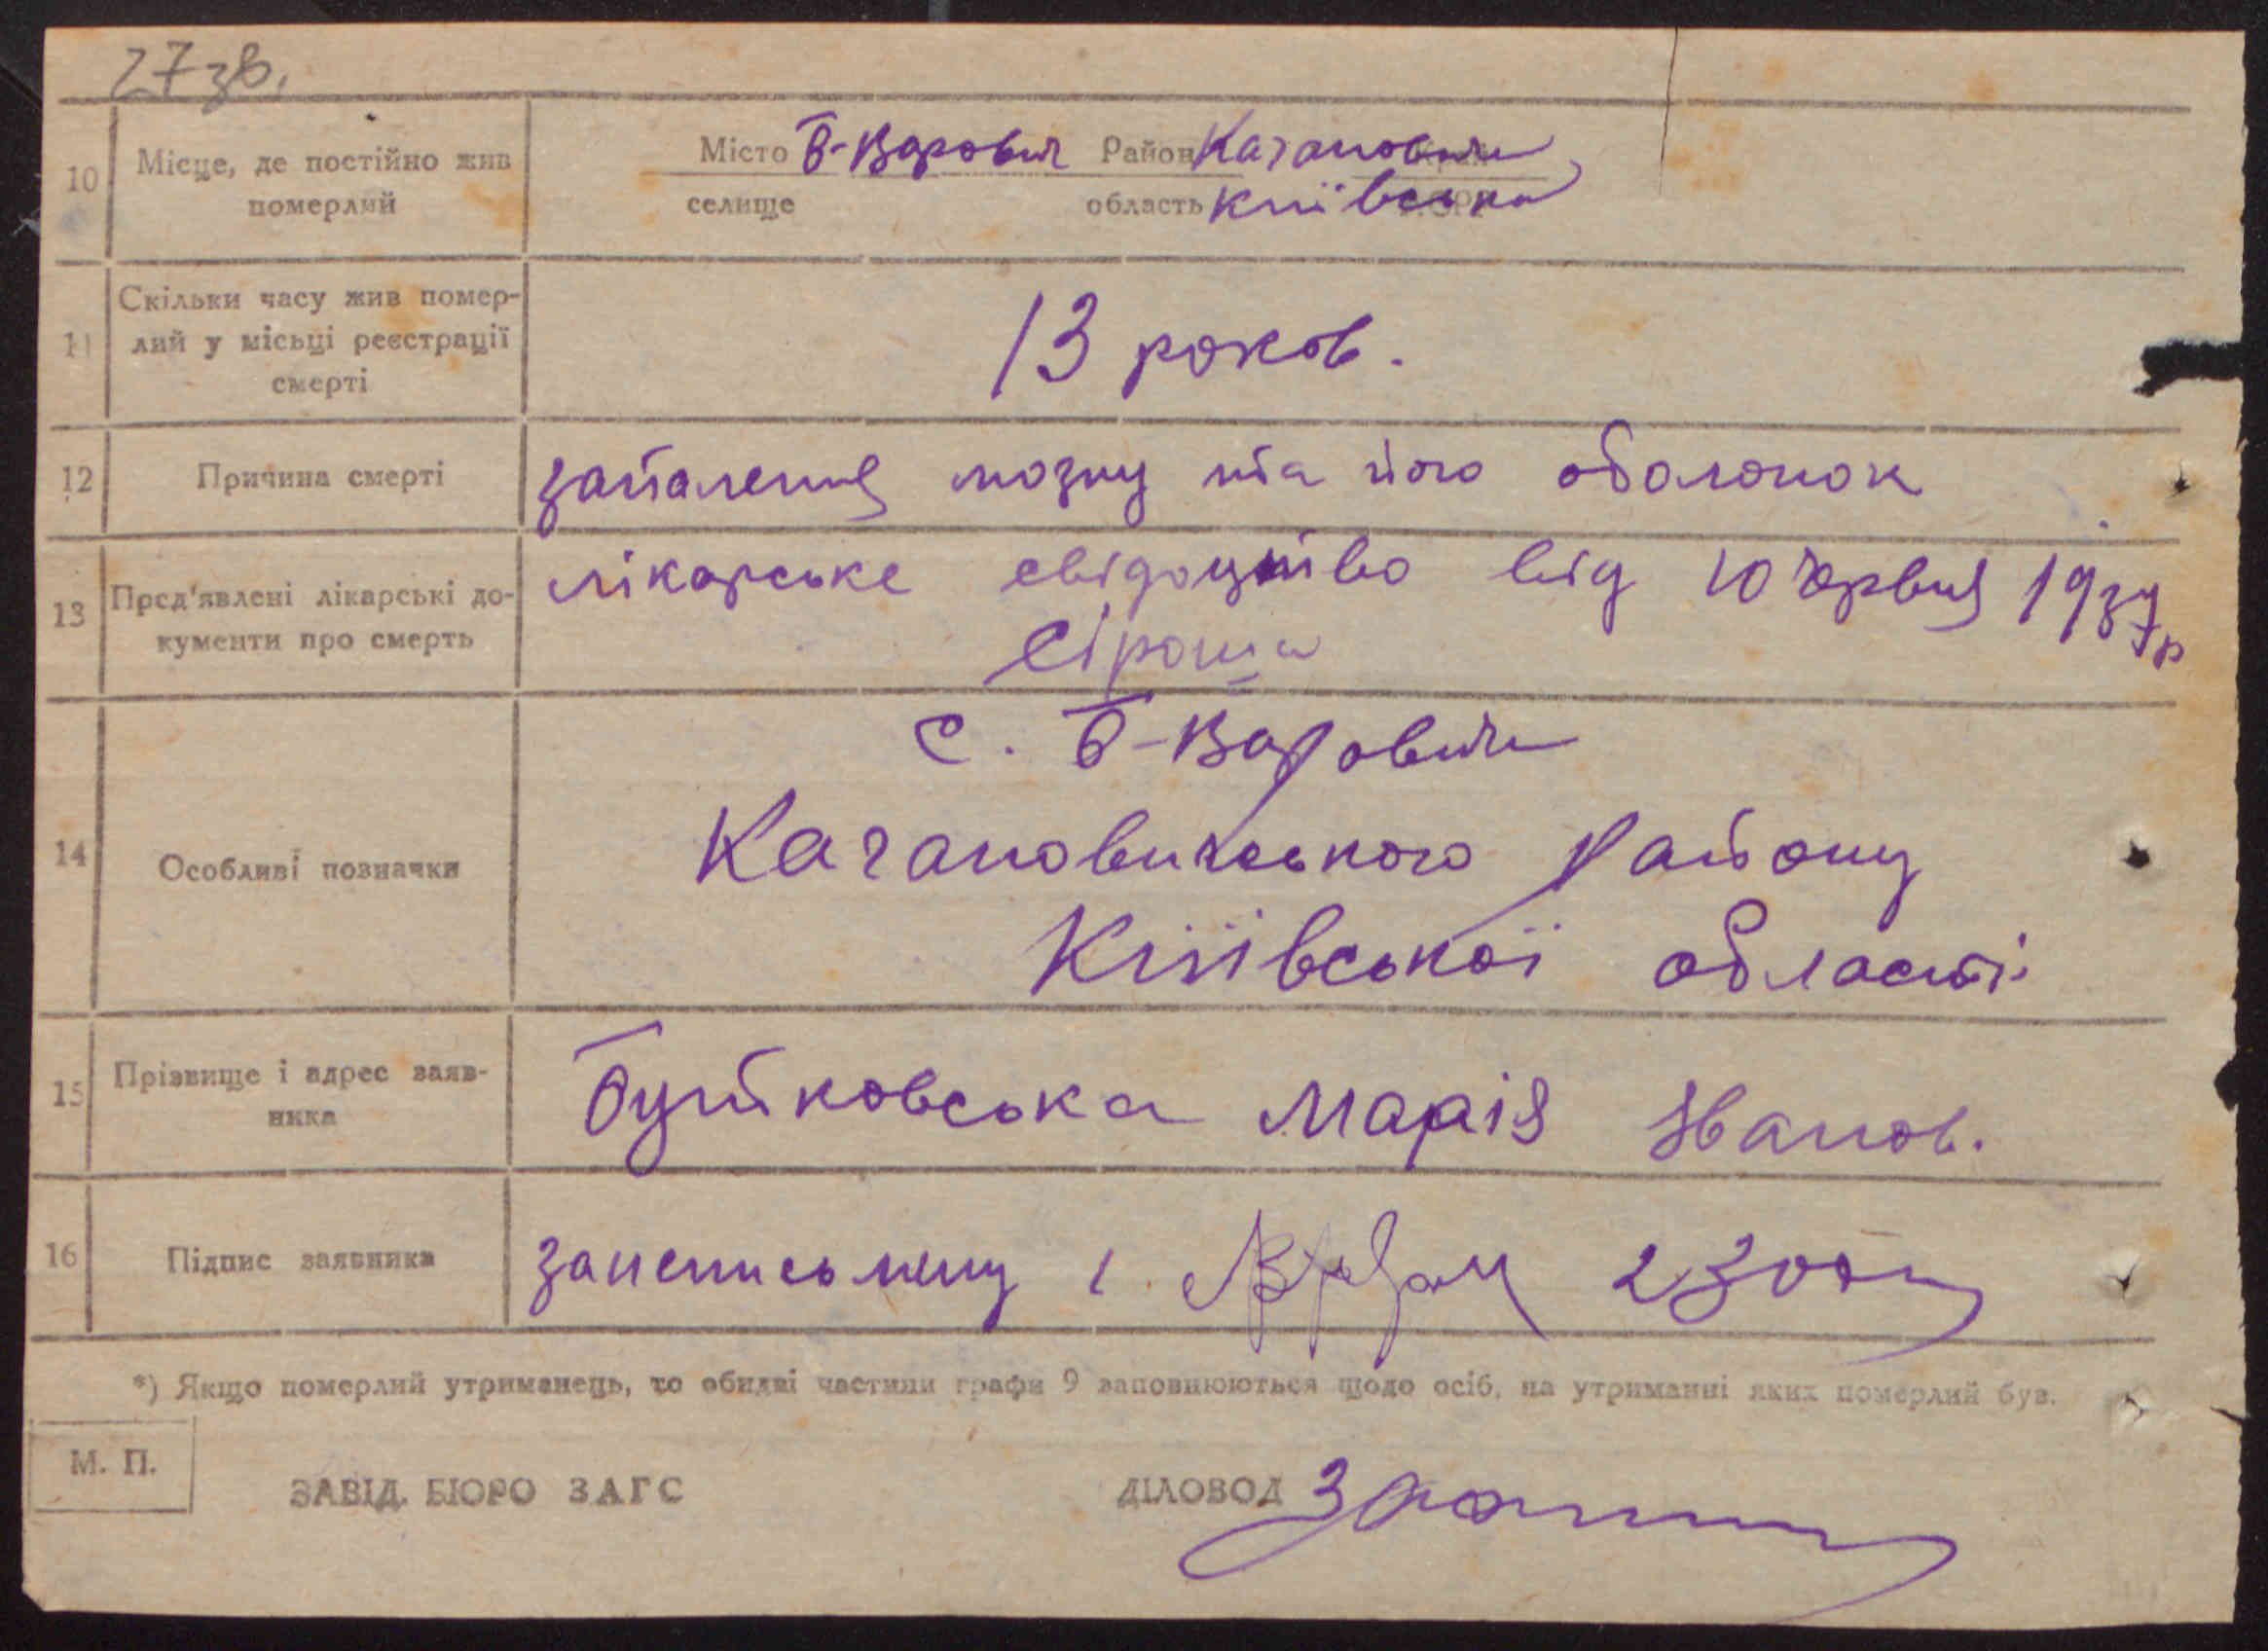 27 зв.
10 Місце, де постійно жив померлий
Місто Б-Варович Район Кагановичи
селище область Київська
11 Скільки часу жив помер-
лий у місьці реєстрації
смерті
13 роков.
12 Причина смерті
запалення мозку та його оболонок
13 Пред'явлені лікарські до-
кументи про смерть
лікарське свідоцтво від 10 червня 1937 р
14 Особливі позначки
с. Б-Варовичи
Кагановичського району
Київської області
15 Прізвище і адрес заяв-
ника
Бутковська Марія Иванов.
16 Підпис заявника
занеписьмену
*) Якщо померлий утриманець, то обидві частини графи 9 заповнюються щодо осіб, на утриманні яких померлий був.
М. П.
ЗАВІД. БЮРО ЗАГС
ДІЛОВОД